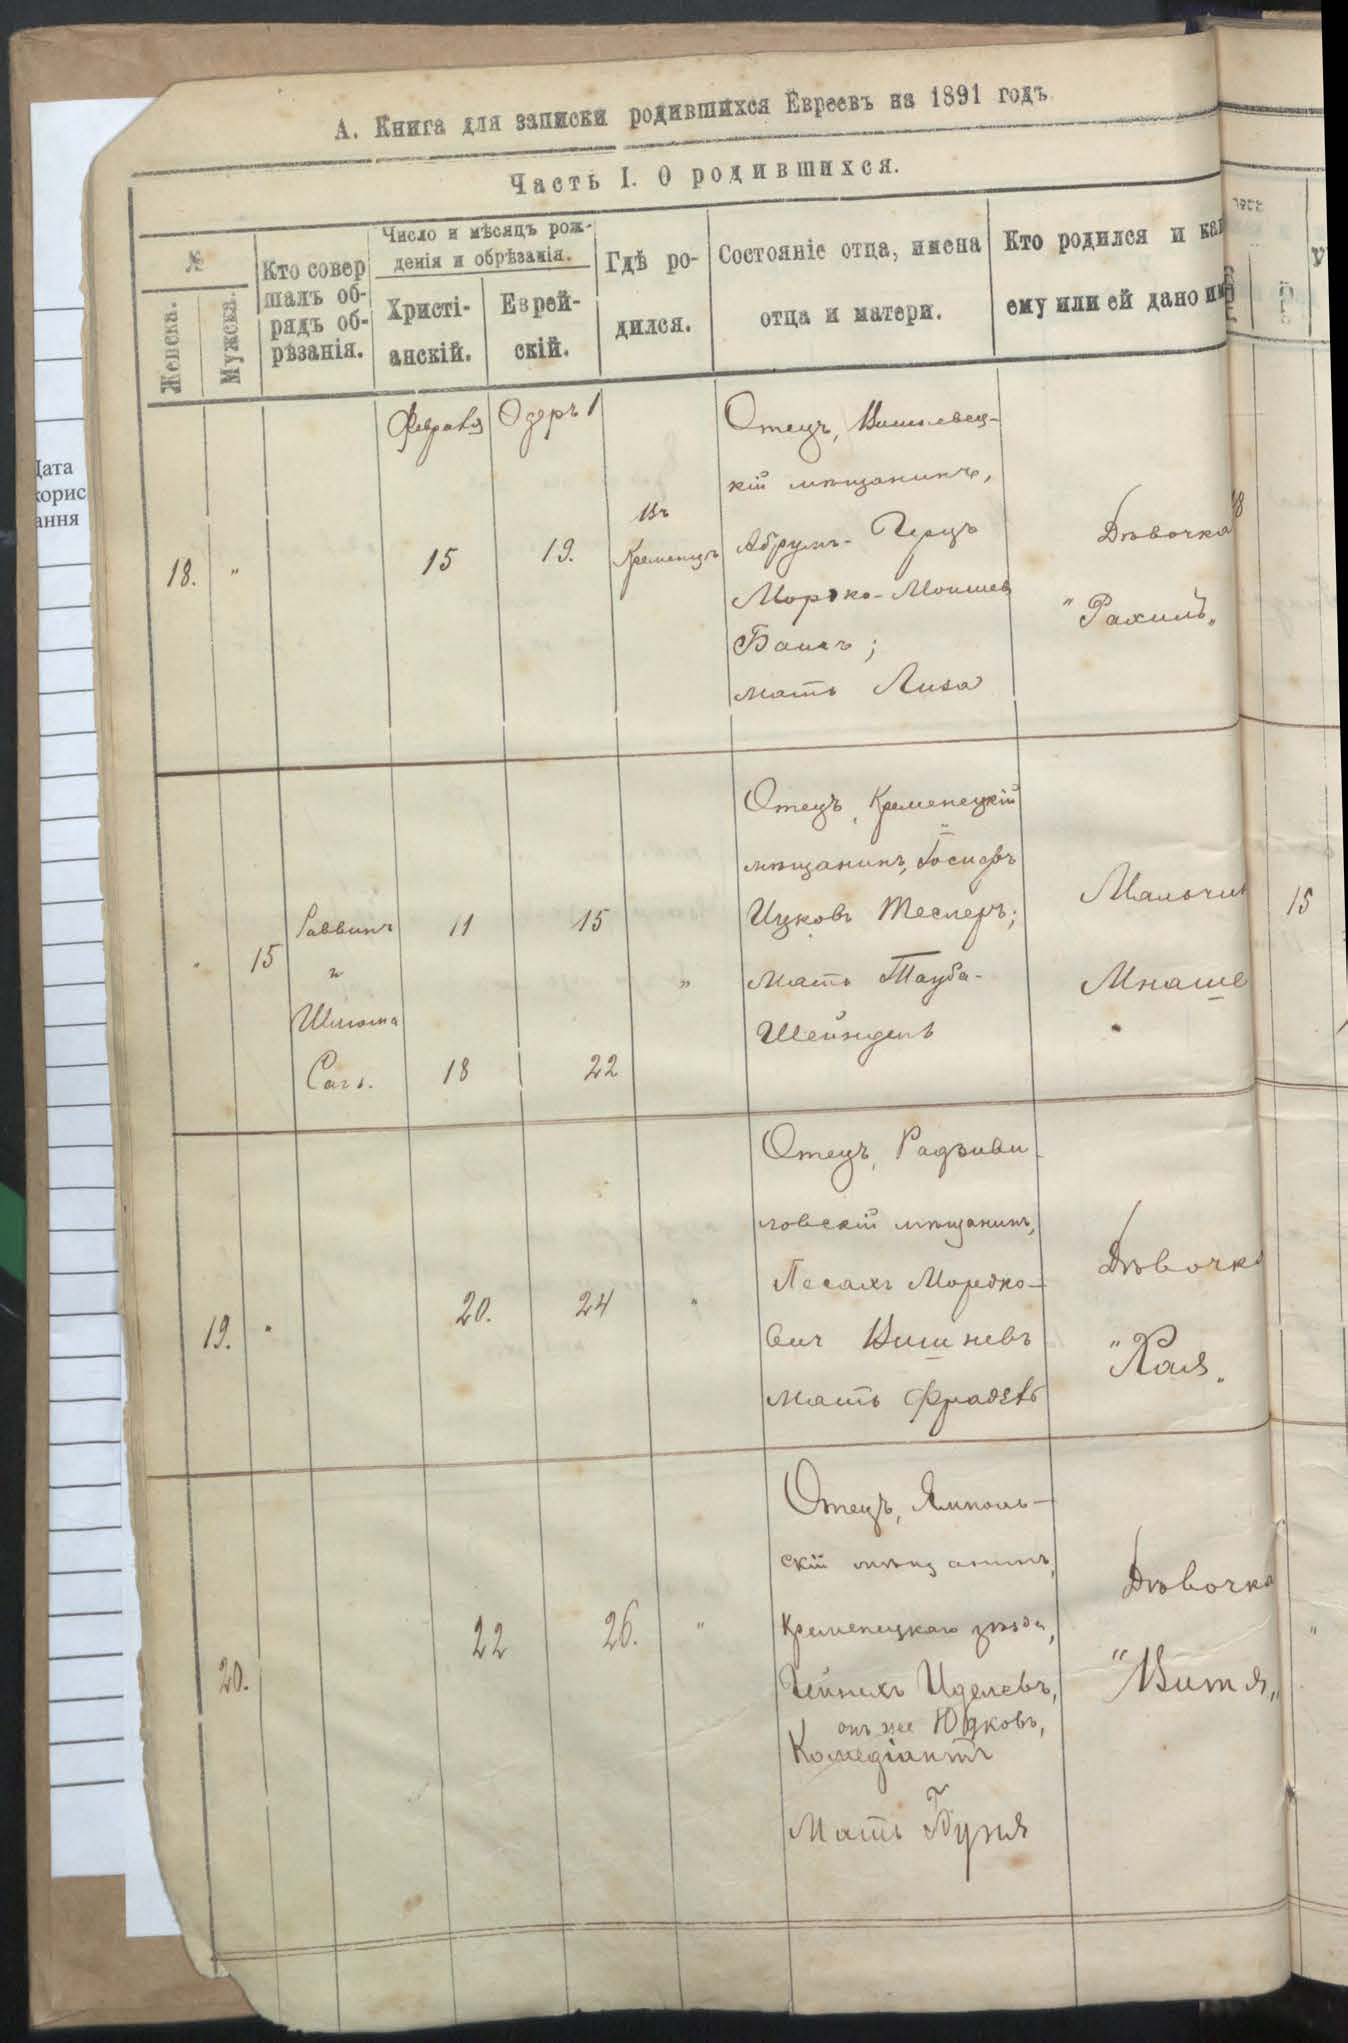 А. Книга для записки родившихся Евреевъ на 1891 годъ
Часть I. О родившихся.
№
Женска.
Мужска.
Кто совер
шалъ об-
рядъ об-
рѣзанія.
Число и мѣсяцъ рож-
денія и обрѣзанія.
Христі-
анскій.
Еврей-
скій.
Гдѣ ро-
дился.
Состояніе отца, имена
отца и матери.
Кто родился и как
ему или ей дано им
Февраля
Одеръ 1
18.
"
15
19.
Въ
Кременцѣ
Отецъ, Вишневец-
кій мѣщанинъ,
Абрумъ- Герцъ
Мордко- Мошков
Бакъ;
мать Лиза
Дѣвочка
"Рахиль"
18
"
15
Раввинъ
и
Шлиома
Сагъ.
11
18
15
22
"
Отецъ, Кременецкій
мѣщанинъ, Іосифъ
Ицковъ Теслеръ;
Мать Тауба-
Шейндель
Мальчик
Мнаше
15
19.
"
20.
24
"
Отецъ, Радзиви-
ловскій мѣщанинъ,
Песахъ Мордко-
вич Вишневъ
мать Фрадель
Дѣвочка
"Хая"
20.
22
26.
"
Отецъ, Ямполь-
скій мѣщанинъ,
Кременецкаго уѣзда,
Гейнихъ Иделевъ,
онъ же Юдковъ,
Комедіантъ
Мать Буня
Дѣвочка
"Витя"
"
Дата
корис
ання